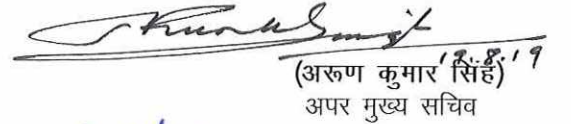 19.8.19
(अरूण कुमार सिंह)
अपर मुख्य सचिव